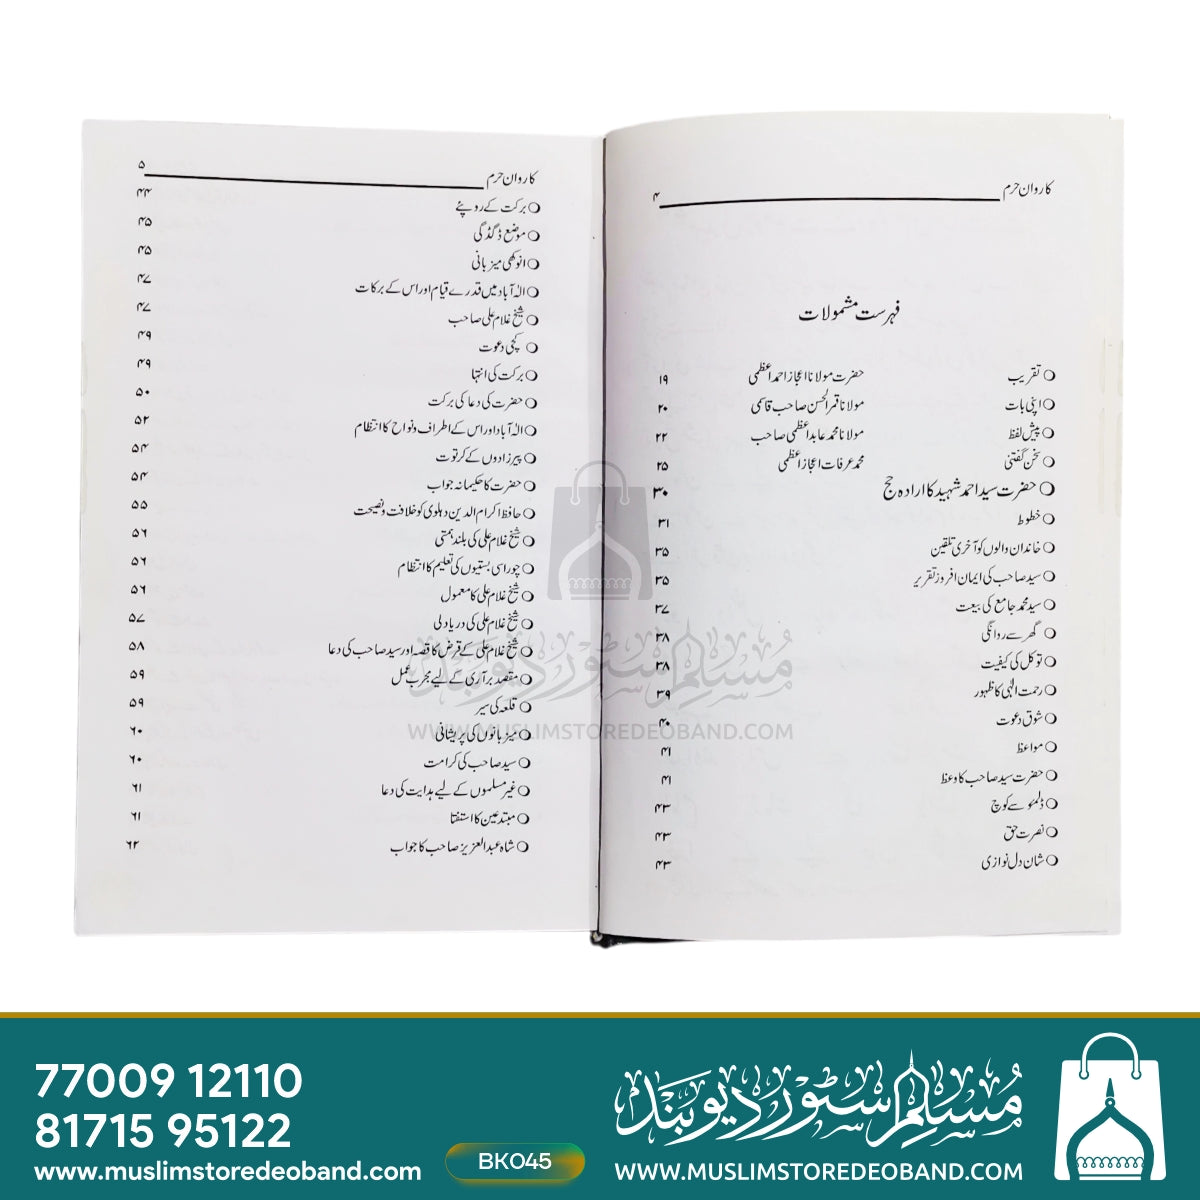 کاروان حرم ۴
فہرست مشمولات
تقریب حضرت مولانا اعجاز احمد اعظمی ۱۹
اپنی بات مولانا قمر الحسن صاحب قاسمی ۲۰
پیش لفظ مولانا محمد عابد اعظمی صاحب ۲۲
سخن گفتنی محمد عرفات اعجاز اعظمی ۲۵
حضرت سید احمد شہید کا ارادہ حج ۳۰
خطوط ۳۱
خاندان والوں کو آخری تلقین ۳۵
سید صاحب کی ایمان افروز تقریر ۳۵
سید محمد جامع کی بیعت ۳۷
گھر سے روانگی ۳۸
توکل کی کیفیت ۳۸
رحمت الٰہی کا ظہور ۳۹
شوق دعوت ۴۰
مواعظ ۴۱
حضرت سید صاحب کا وعظ ۴۱
ڈلمئو سے کوچ ۴۳
نصرت حق ۴۳
شان دل نوازی ۴۳
کاروان حرم ۵
برکت کے روپئے ۴۴
موضع ڈگڈگی ۴۵
انوکھی میزبانی ۴۵
الٰہ آباد میں قدرے قیام اور اس کے برکات ۴۷
شیخ غلام علی صاحب ۴۷
کچی دعوت ۴۹
برکت کی انتہا ۴۹
حضرت کی دعا کی برکت ۵۰
الٰہ آباد اور اس کے اطراف ونواح کا انتظام ۵۲
پیرزادوں کے کرتوت ۵۴
حضرت کا حکیمانہ جواب ۵۴
حافظ اکرام الدین دہلوی کو خلافت و نصیحت ۵۵
شیخ غلام علی کی بلند ہمتی ۵۶
چوراسی بستیوں کی تعلیم کا انتظام ۵۶
شیخ غلام علی کا معمول ۵۶
شیخ غلام علی کی دریا دلی ۵۷
شیخ غلام علی کے قرض کا قصہ اور سید صاحب کی دعا ۵۸
مقصد برآری کے لیے مجرب عمل ۵۹
قلعہ کی سیر ۵۹
میزبانوں کی پریشانی ۶۰
سید صاحب کی کرامت ۶۰
غیر مسلموں کے لیے ہدایت کی دعا ۶۱
مبتدعین کا استفتا ۶۱
شاہ عبدالعزیز صاحب کا جواب ۶۲
مسلم سٹور دیوبند
WWW.MUSLIMSTOREDEOBAND.COM
77009 12110
81715 95122
www.muslimstoredeoband.com
BK045
مسلم سٹور دیوبند
WWW.MUSLIMSTOREDEOBAND.COM